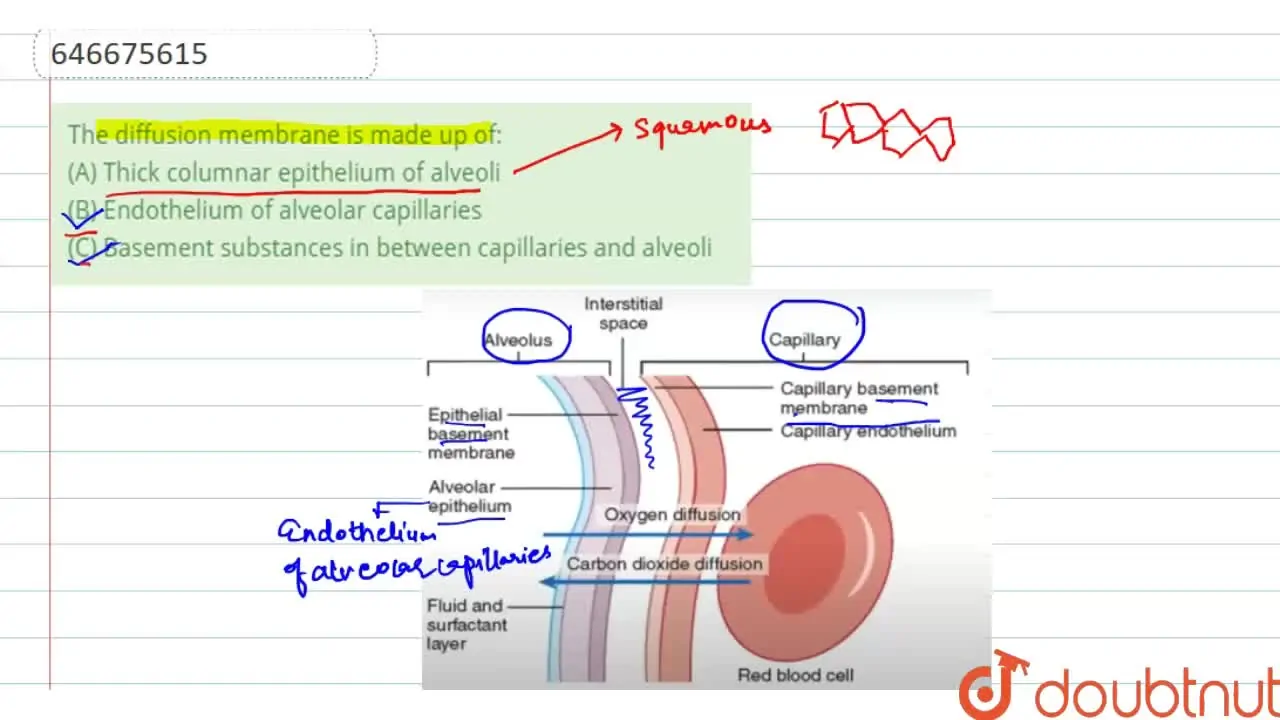 646675615
The diffusion membrane is made up of:
(A) Thick columnar epithelium of alveoli
(B) Endothelium of alveolar capillaries
(C) Basement substances in between capillaries and alveoli
Squamous
Interstitial
space
Alveolus
Capillary
Capillary basement
membrane
Capillary endothelium
Epithelial
basement
membrane
Alveolar
epithelium
Endothelium
of alveolar capillaries
Oxygen diffusion
Carbon dioxide diffusion
Fluid and
surfactant
layer
Red blood cell
doubtnut